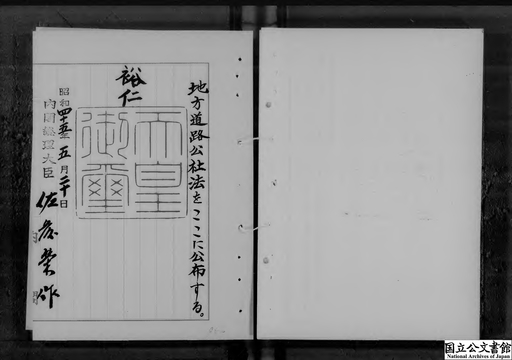 地方道路公社法をここに公布する。
裕仁
天皇御璽
昭和四十五年五月二十日
内閣総理大臣 佐藤榮作
国立公文書館
National Archives of Japan